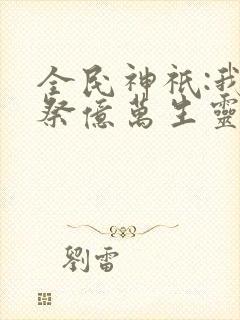 全民神祇:我
祭億萬生靈
劉雷